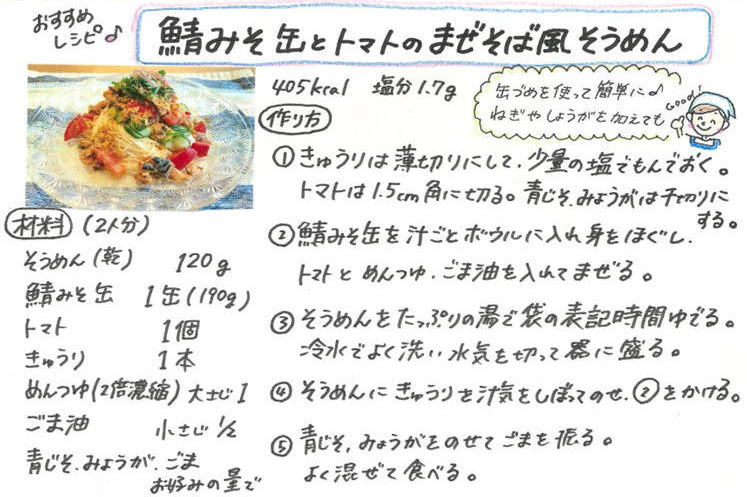 おすすめ
レシピ♪
鯖みそ缶とトマトのまぜそば風そうめん
405kcal 塩分1.7g
缶づめを使って簡単に♪
ねぎやしょうがを加えても
GOOD!
作り方
①きゅうりは薄切りにして、少量の塩でもんでおく。
トマトは1.5cm角に切る。青じそ、みょうがは千切りに
する。
②鯖みそ缶を汁ごとボウルに入れ身をほぐし、
トマトとめんつゆ、ごま油を入れてまぜる。
③そうめんをたっぷりの湯で袋の表記時間ゆでる。
冷水でよく洗い水気を切って器に盛る。
④そうめんにきゅうりを汁気をしぼってのせ、②をかける。
⑤青じそ、みょうがをのせてごまを振る。
よく混ぜて食べる。
材料 (2人分)
そうめん(乾) 120g
鯖みそ缶 1缶(190g)
トマト 1個
きゅうり 1本
めんつゆ(2倍濃縮) 大さじ1
ごま油 小さじ1/2
青じそ、みょうが、ごま
お好みの量で